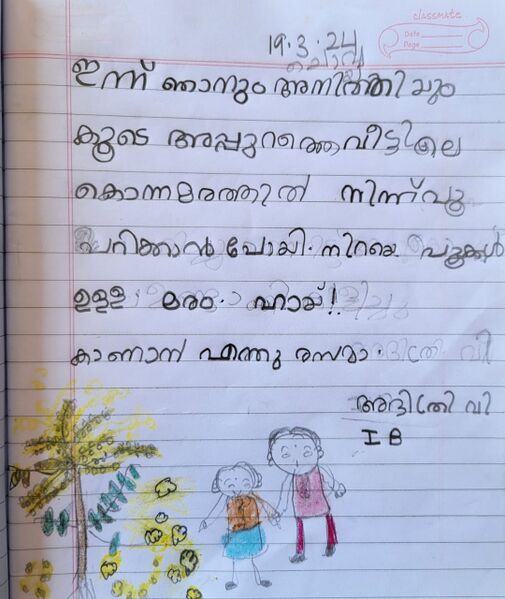 classmate
Date
Page
19.3.24
ചൊവ്വ
ഇന്ന് ഞാനും അനിത്തിയും
കൂടെ അപ്പുറത്തെ വീട്ടിലെ
കൊന്നമരത്തിൽ നിന്ന് പൂ
പറിക്കാൻ പോയി. നിറയെ പൂക്കൾ
ഉള്ള മരം. ഹായ്!
കാണാന് എന്തു രസമാ.
അദ്രിതി വി
I B